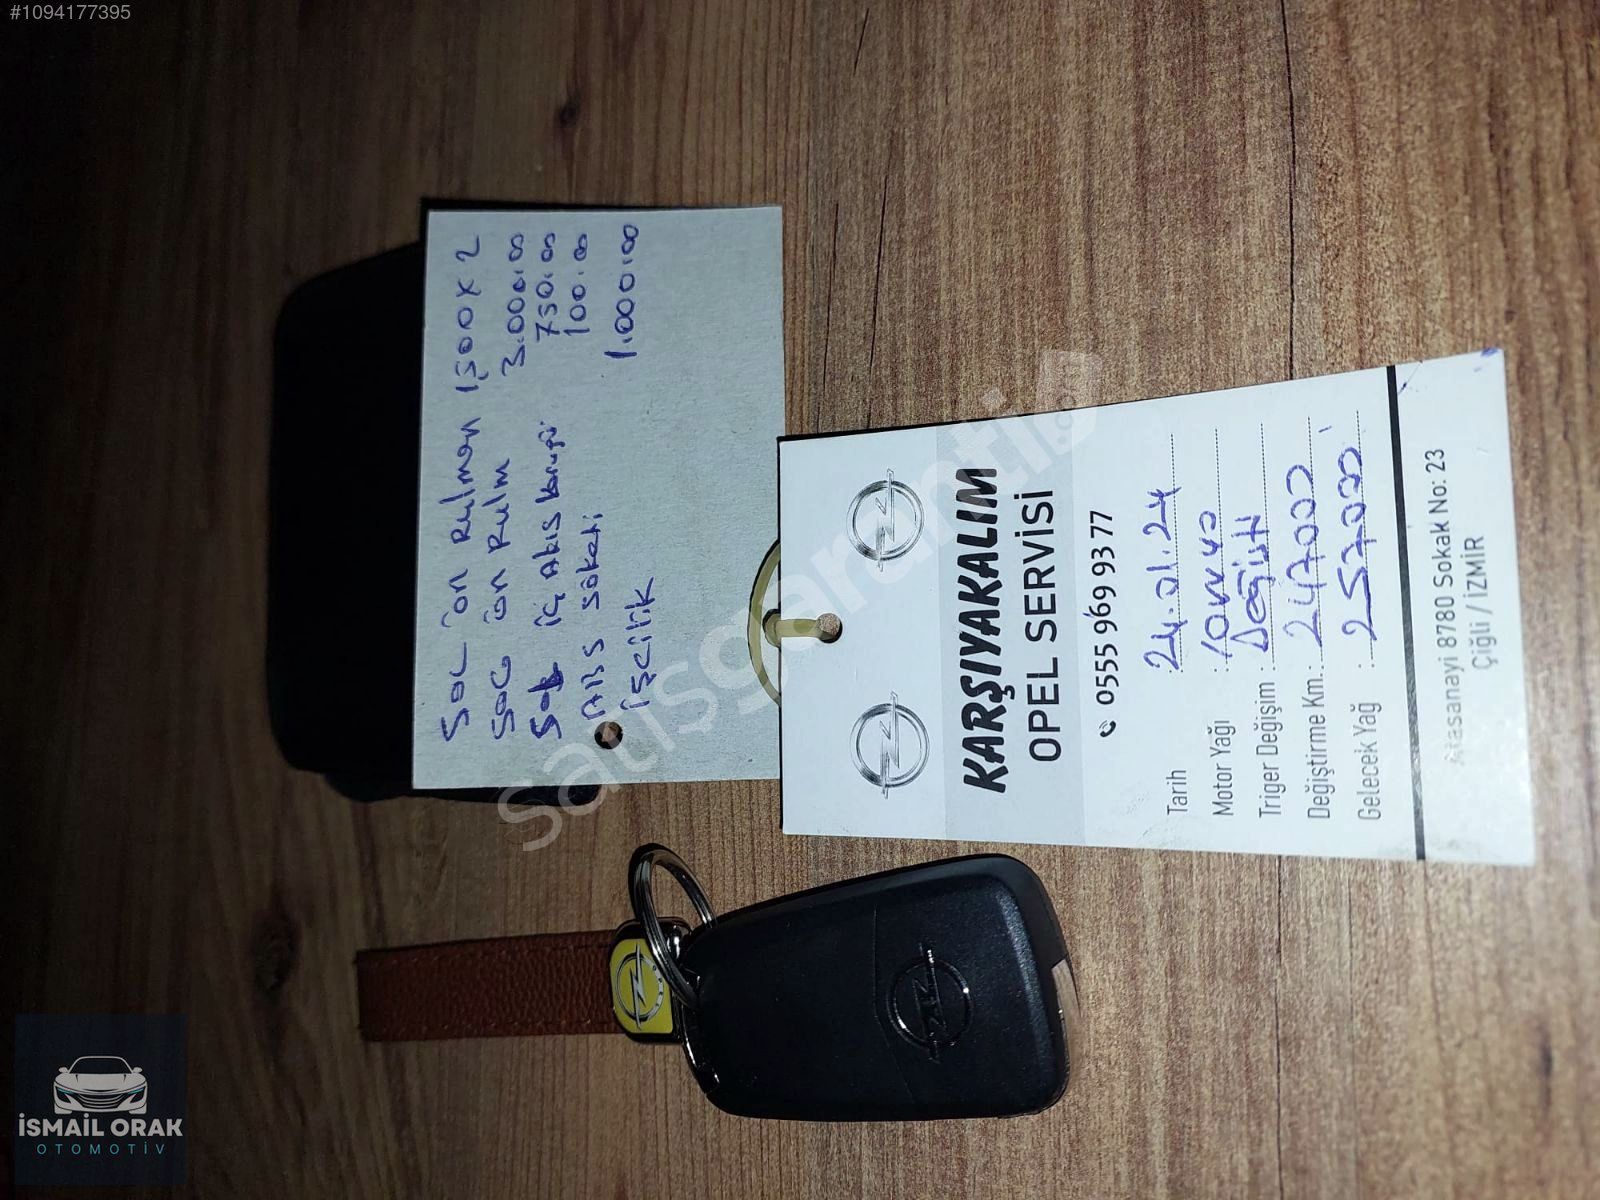 #1094177395
SOL ÖN RULMAN 1500 X 2
SOL ÖN RULM 3.000.00
İÇ AKIS 750.00
AKS SOKETİ 100.00
İŞÇİLİK 1.000.00
satışgaranti.com
KARŞIYAKALIM
OPEL SERVİSİ
0555 969 93 77
Tarih : 24.01.24
Motor Yağı : 10w40
Triger Değişim : Değişti
Değiştirme Km.: 247000
Gelecek Yağ : 257000
Atasanayi 8780 Sokak No: 23
Çiğli / İZMİR
İSMAİL ORAK
OTOMOTİV